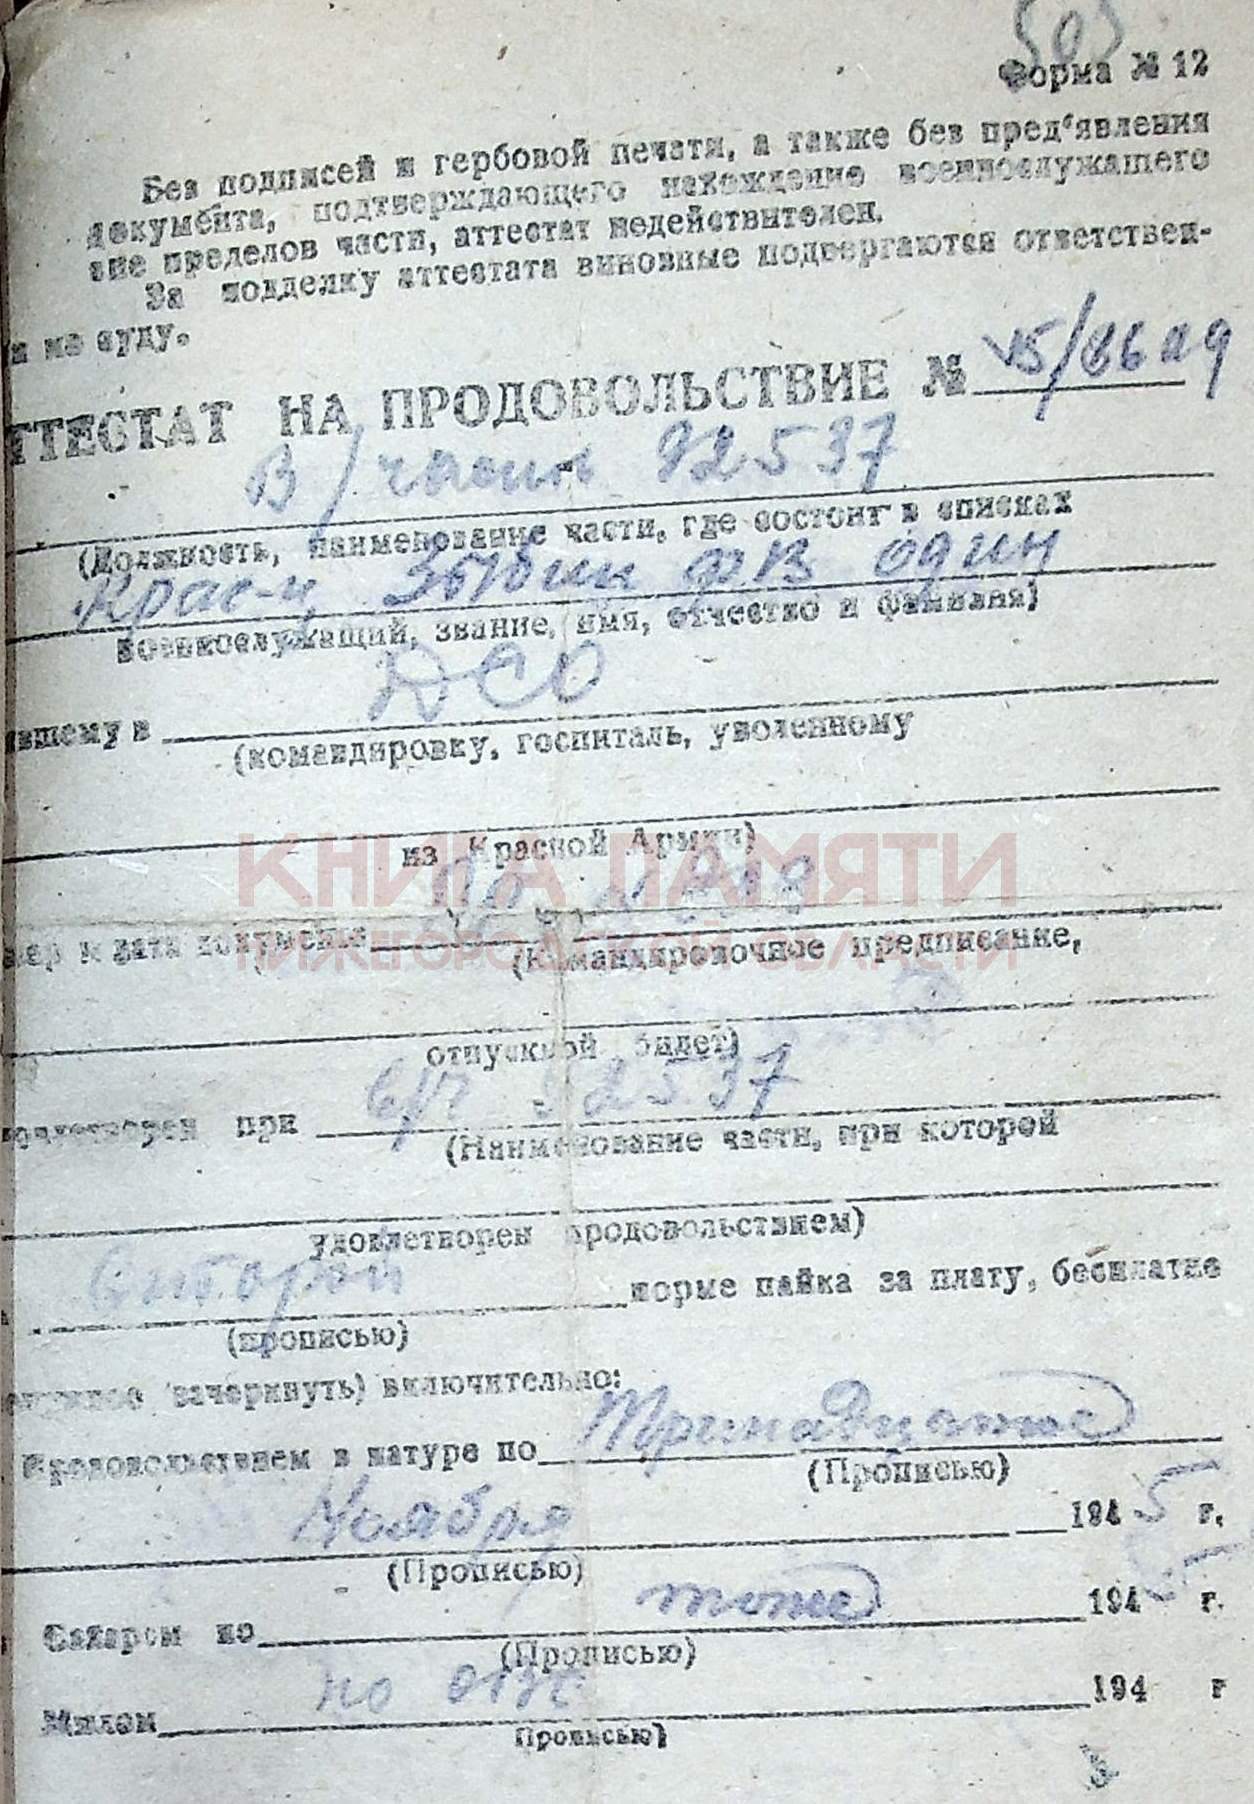 Форма № 12
Без подписей и гербовой печати, а также без пред‘явления
документа, подтверждающего нахождение военнослужащего
вне пределов части, аттестат недействителен.
За подделку аттестата виновные подвергаются ответствен-
и по суду.
ТТЕСТАТ НА ПРОДОВОЛЬСТВИЕ №
В/части 92537
(Должность, наименование части, где состоит в списках
Крас-ц Зыбин ФВ один
военнослужащий, звание, имя, отчество и фамилия)
вшему в ДСО
(командировку, госпиталь, уволенному
из Красной Армии)
КНИГА ПАМЯТИ
мер и дата документа
НИЖЕГОРОДСКОЙ ОБЛАСТИ
(Командировочное предписание,
отпускной билет)
при в/ч 92537
(Наименование части, при которой
удовлетворен продовольствием)
норме пайка за плату, бесплатно
(прописью)
зачеркнуть) включительно:
Продовольствием в натуре по Тринадцатое
(Прописью)
Ноября 1945 г.
(Прописью)
Сахаром по тоже 1945 г.
(Прописью)
Мылом 194 г
Прописью)